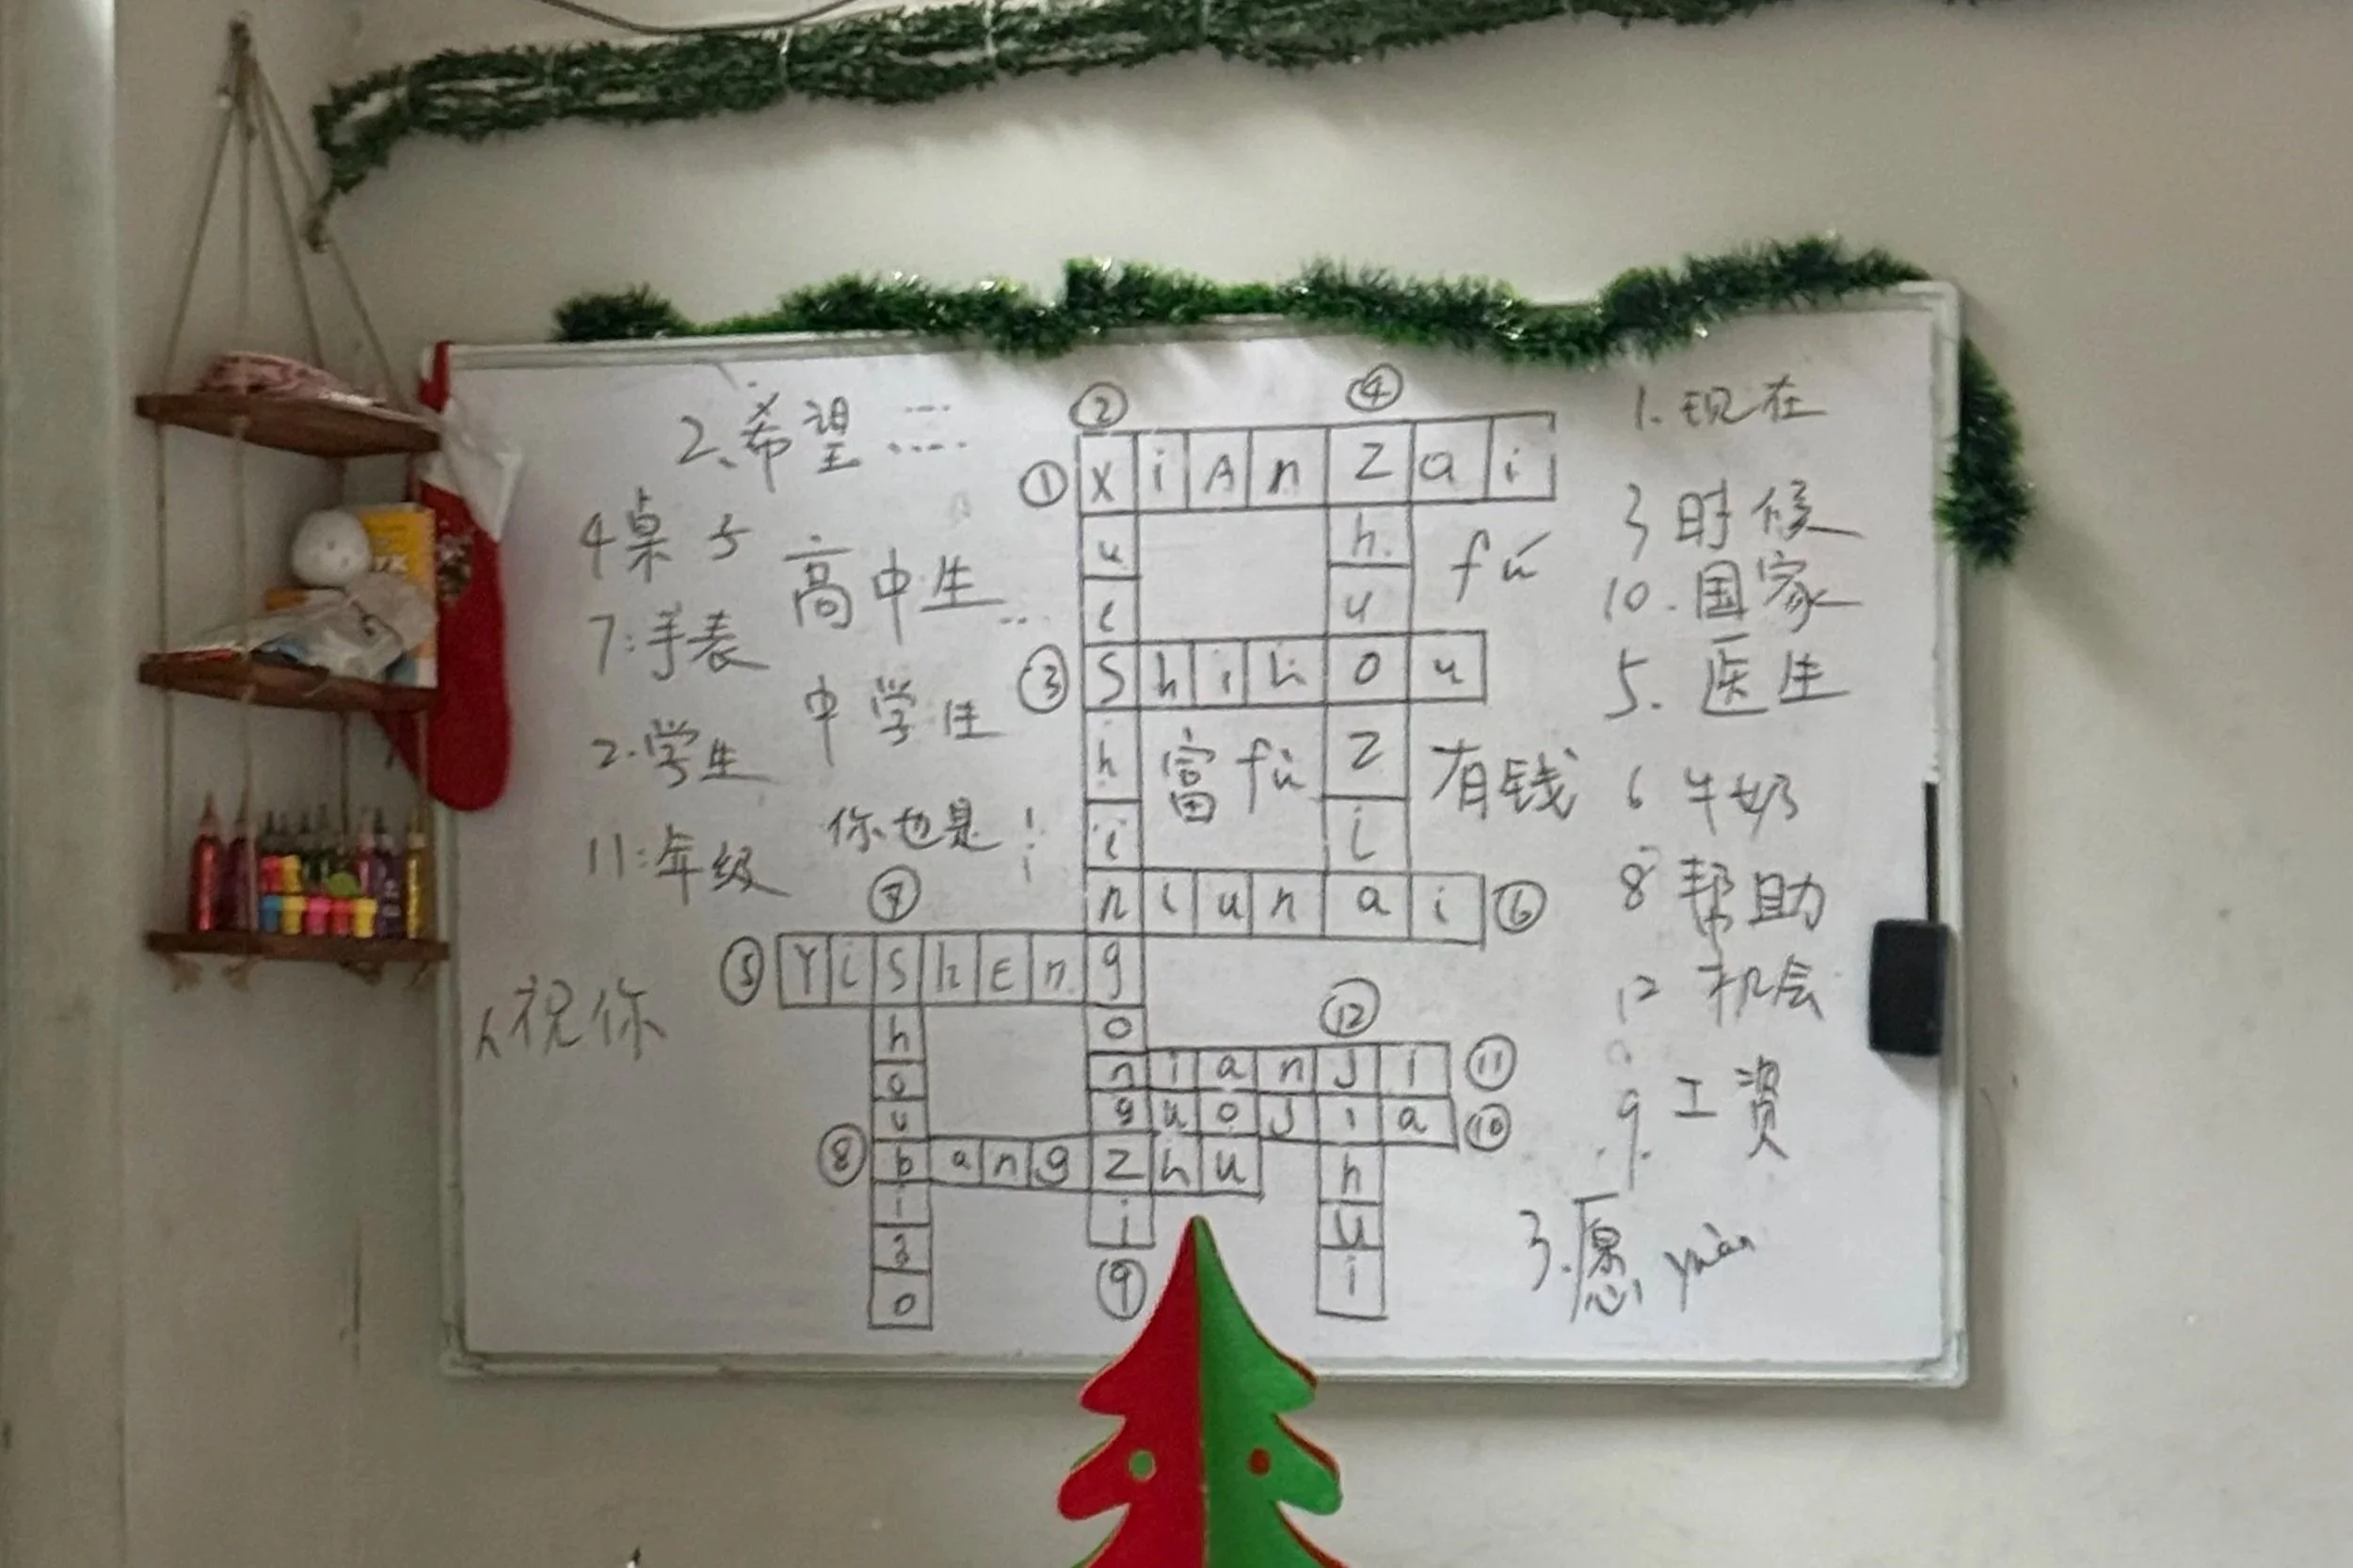 2、希望……
4桌子
7:手表
2.学生
11:年级
高中生…
中学生
你也是!
祝你
② ④
① X i A n Z a i
u h
e u
③ S h i h o u
h Z
i i
n i u n a i ⑥
⑦
⑤ Y i S h E n g
h o ⑫
o n i a n J i ⑪
u g u o J i a ⑩
⑧ b a n g Z h u h
i i u
a i
o ⑨
fú
富 fù
有钱
1.现在
3 时候
10.国家
5.医生
6 牛奶
8 帮助
12 机会
9 工资
3.愿 yuàn